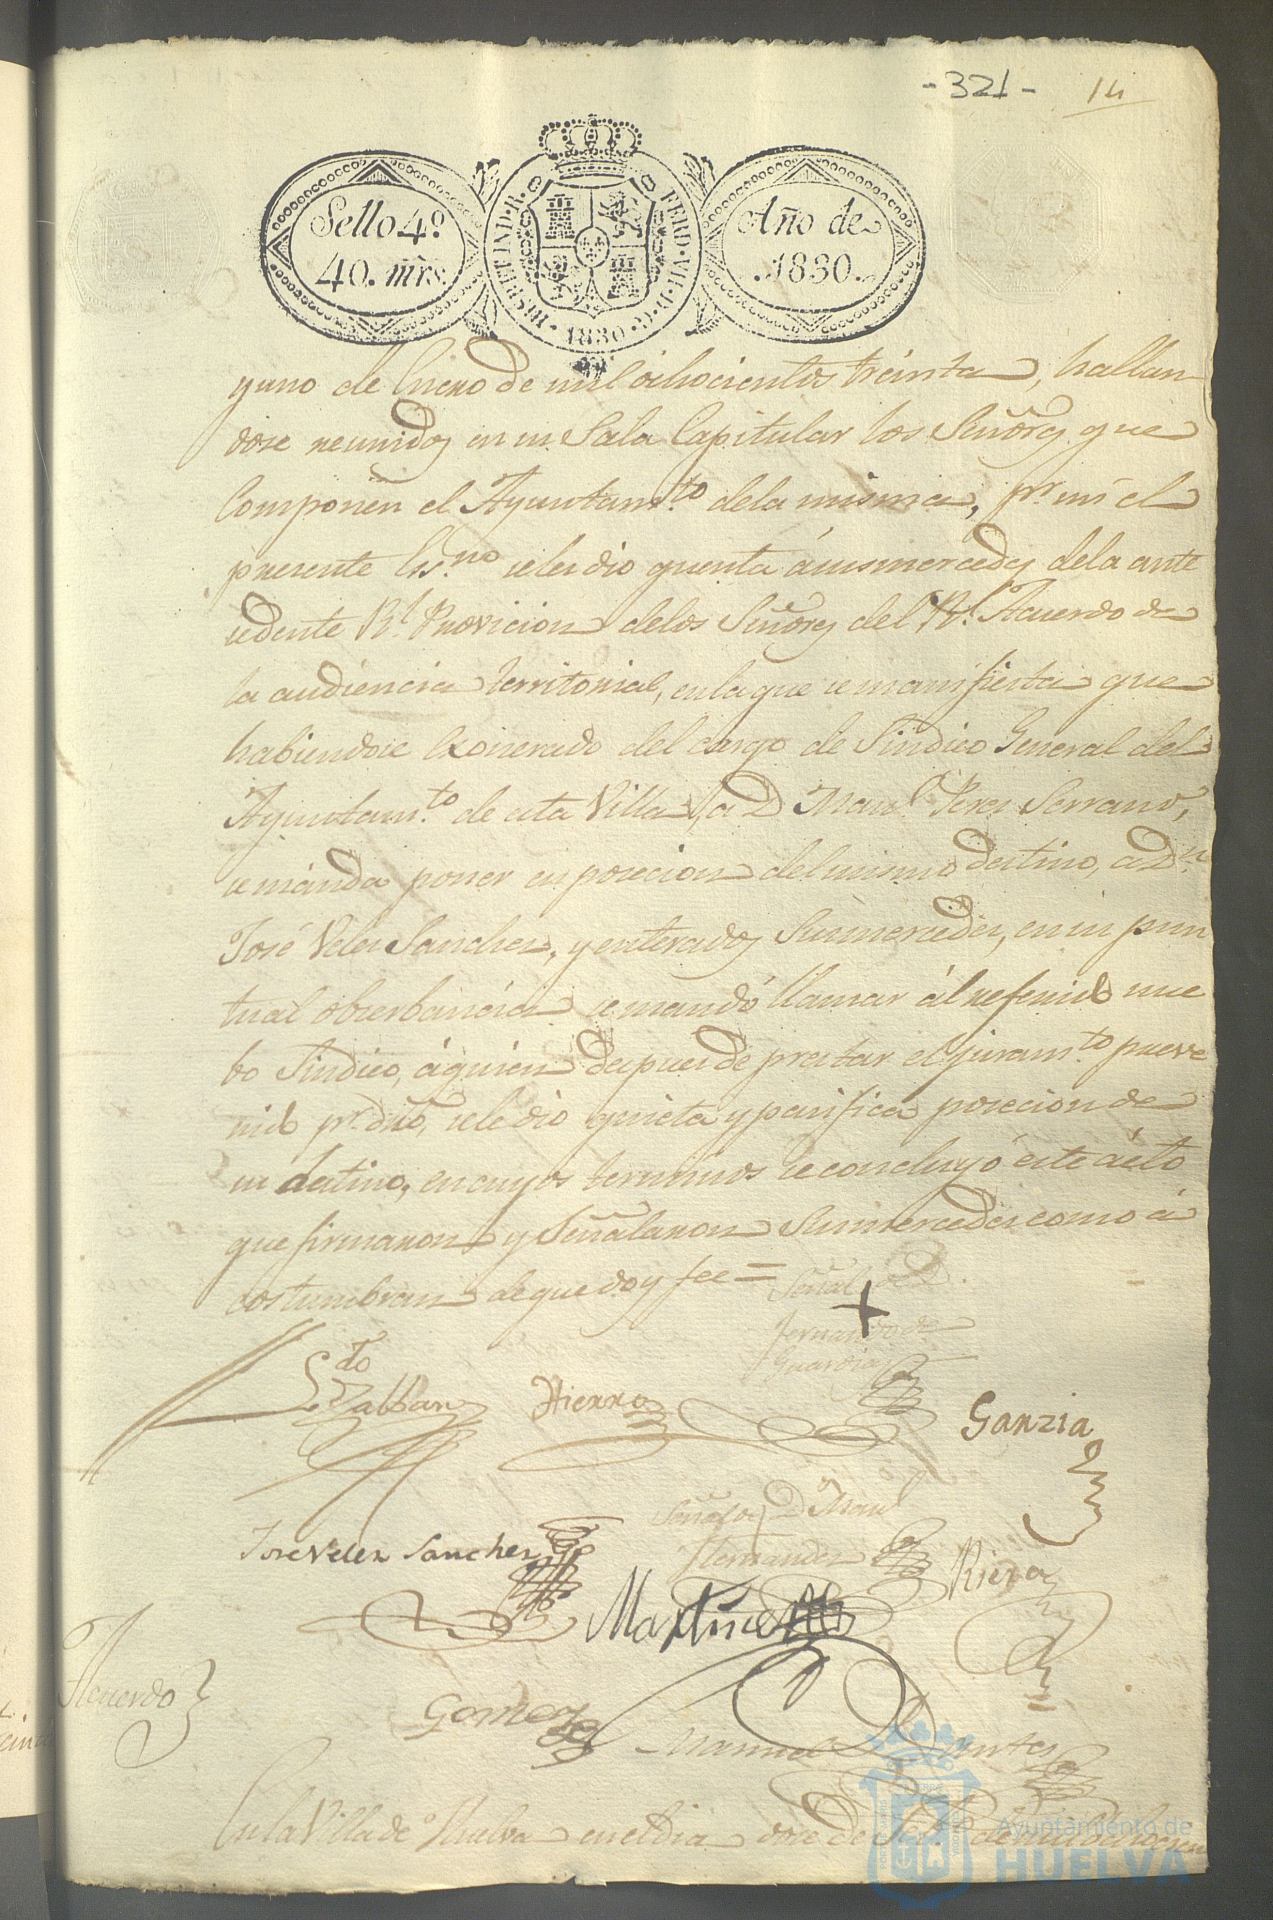 -321- 14
Sello 4º
40. mrs.
HISP. ET IND. R. FERD. VII. D. G. 1830
Año de
.1830.
y uno de Enero de mil ochocientos treinta, hallan
dose reunidos en su Sala Capitular los Señores que
Componen el Ayuntam.to dela misma, pr. mi el
presente Es.no se les dio quenta á sus mercedes dela ante
cedente Rl. Provicion delos Señores del Rl. Acuerdo de
la audiencia territorial, en la que se manifiesta que
habiendose exonerado del cargo de Sindico General del
Ayuntam.to de esta Villa, a D Manl. Perez Serrano,
se mánda poner en posecion del mismo destino, a Dn.
José Velez Sanchez, y enterados Sus mercedes, en su pun
tual obserbancia se mandó llamar ál referido nue
bo Sindico, á quien despues de prestar el juram.to preve
nido pr. dro, se le dio quieta y pasifica posecion de
su destino, en cuyos terminos se concluyó éste ácto
que firmaron y Señalaron Sus mercedes como á
costumbran de que doy fee =
Señal de D.
+
Fernando de
Guardia
Ldo
Zalban
Hierro
Ganzia
José Velez Sanchez
Señal de D. Manl
Hernandez
Riera
Martinez
Gomez
Manuel
Acuerdo
En la Villa de Huelva en el dia doce de de mil ochocien
Ayuntamiento de
HUELVA